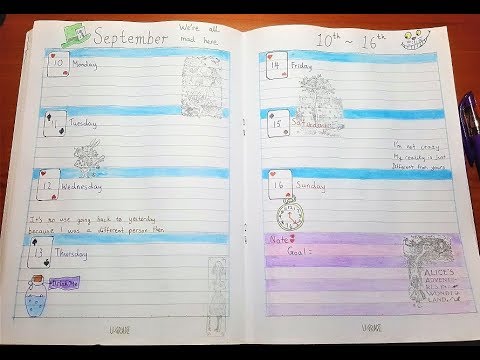 September
We're all
mad here
10 Monday
11 Tuesday
12 Wednesday
It's no use going back to yesterday
because I was a different person then
13 Thursday
Drink Me
10th ~ 16th
14 Friday
15 Saturday
I'm not crazy
My reality is just
Different from yours
16 Sunday
Note
Goal:
ALICE'S